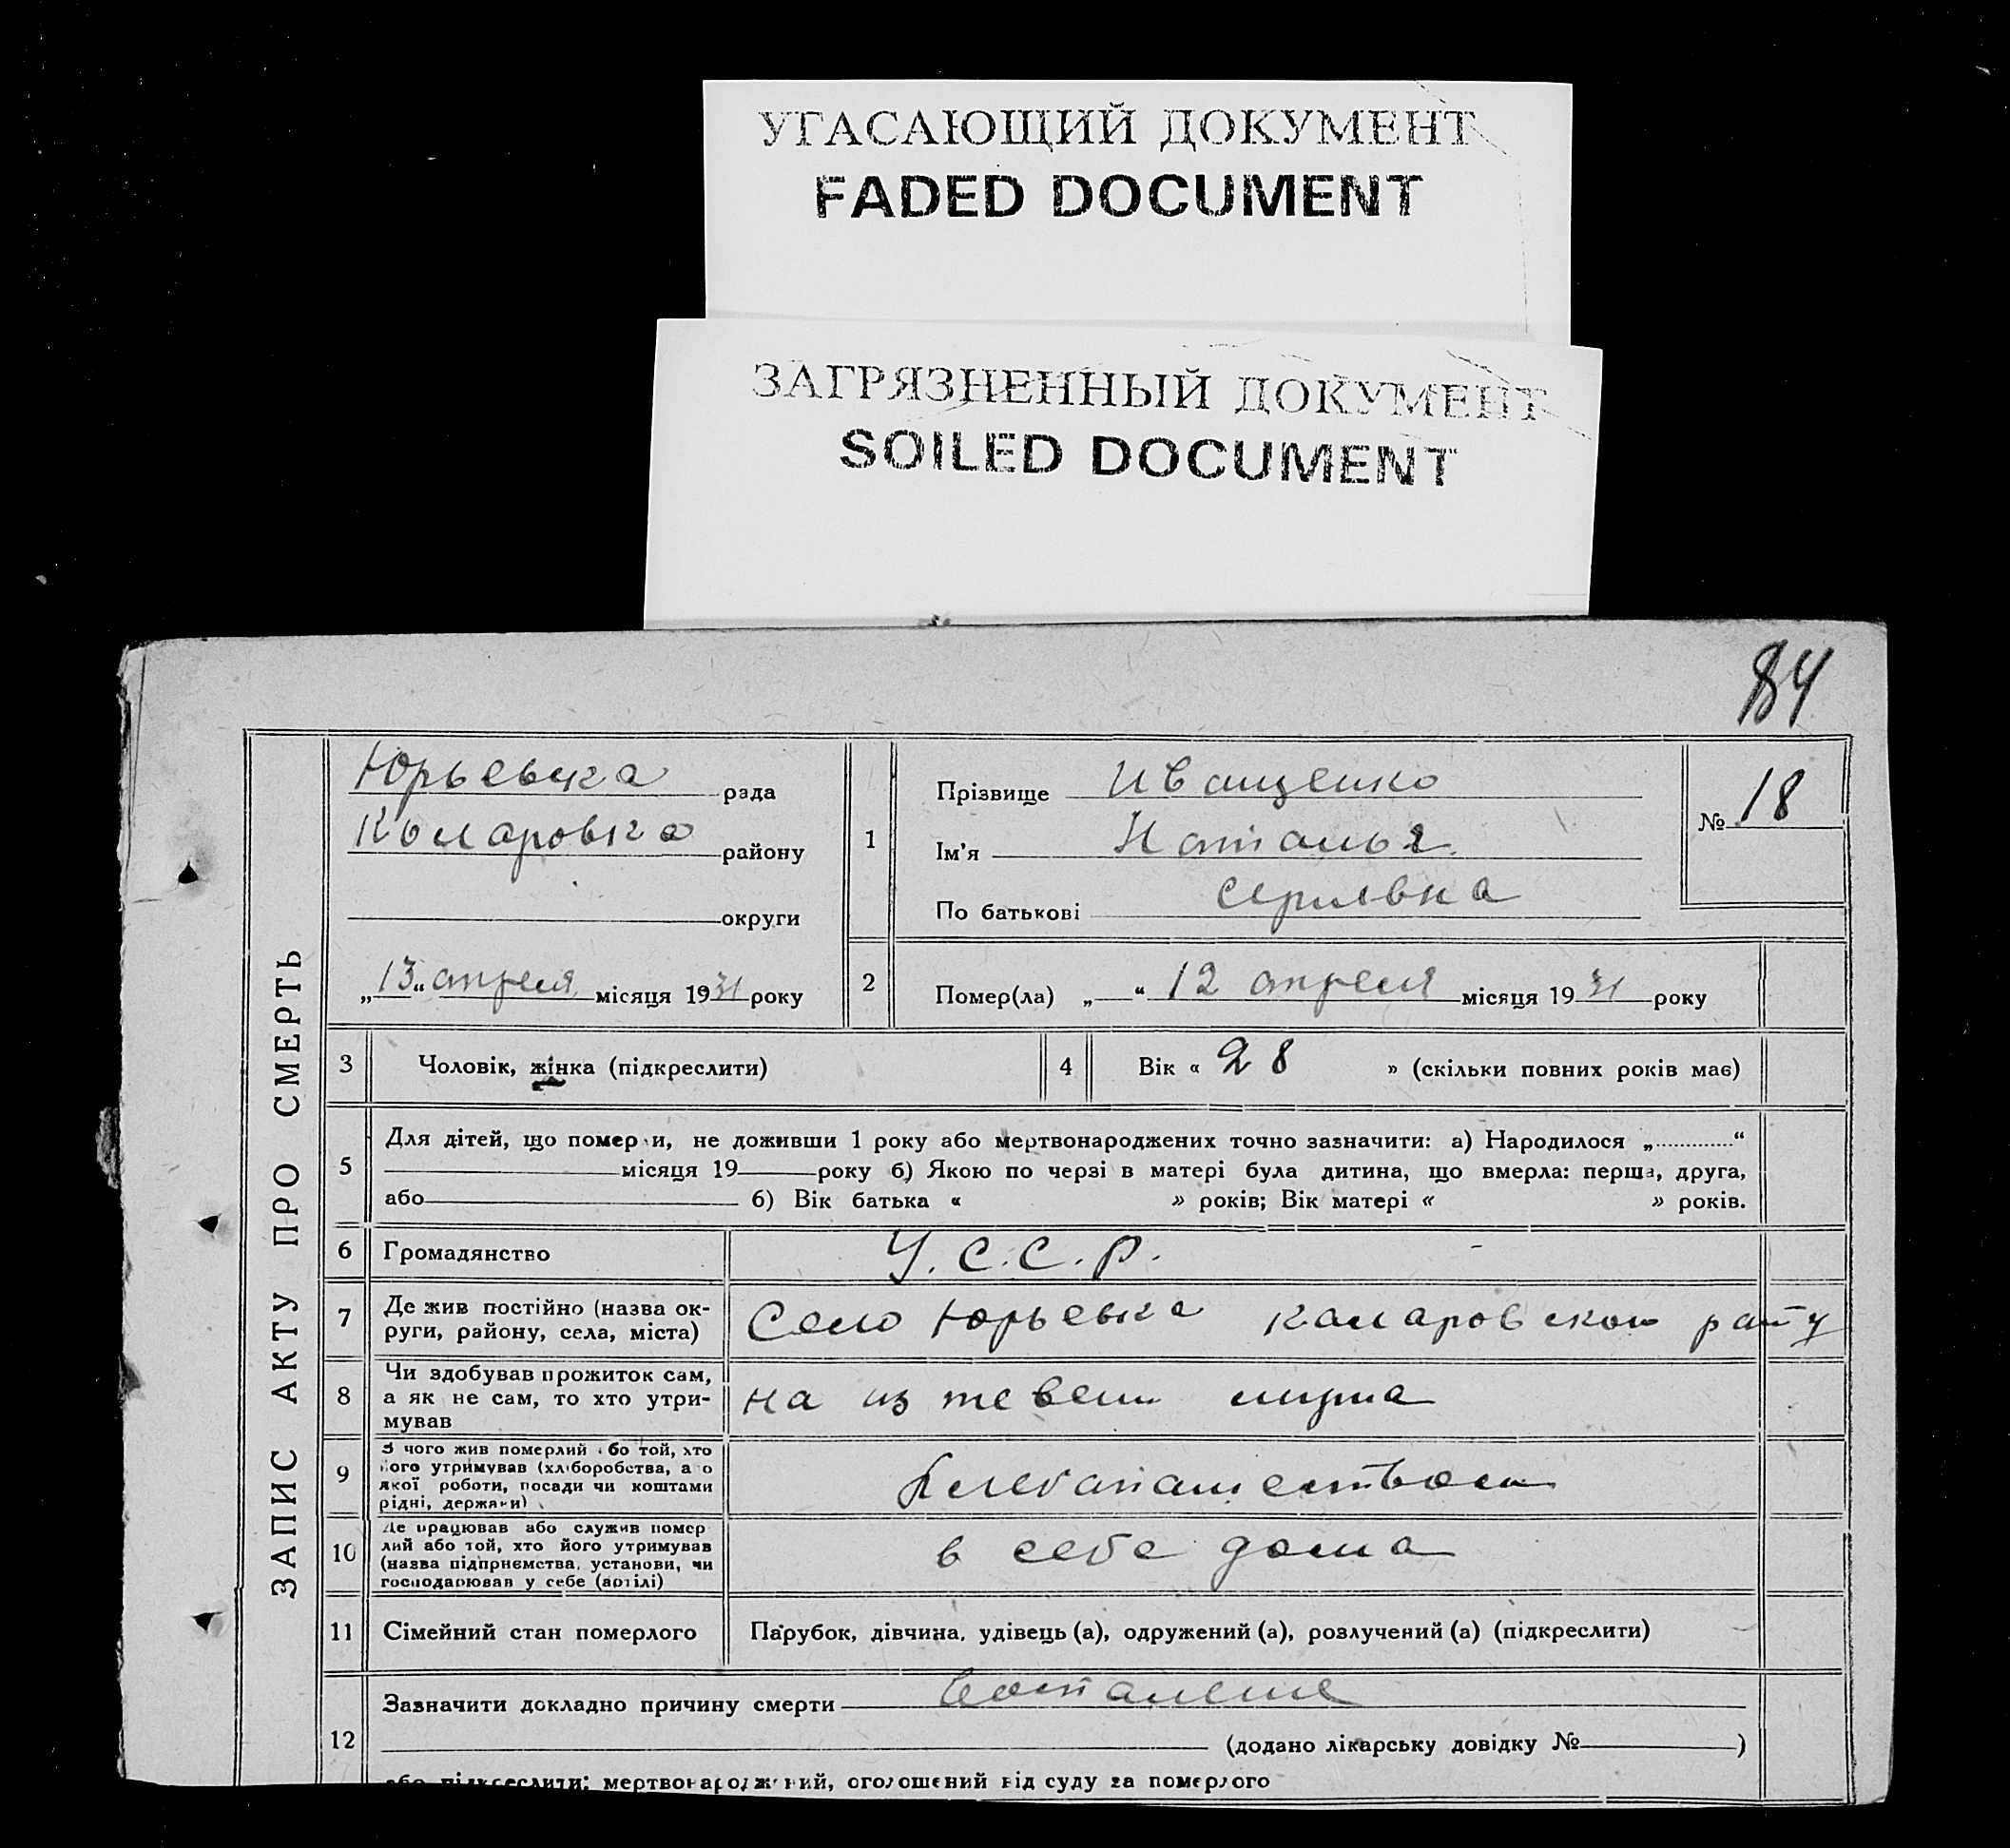 УГАСАЮЩИЙ ДОКУМЕНТ
FADED DOCUMENT
ЗАГРЯЗНЕННЫЙ ДОКУМЕНТ
SOILED DOCUMENT
84
ЗАПИС АКТУ ПРО СМЕРТЬ
Юрьевка рада
Комаровка району
округи
„13“ апреля місяця 1931 року
1
Прізвище Иващенко
Ім’я Наталья
По батькові
№ 18
2
Помер(ла) „ “ 12 апреля місяця 1931 року
3 Чоловік, жінка (підкреслити)
4 Вік « 28 » (скільки повних років має)
5
Для дітей, що померли, не доживши 1 року або мертвонароджених точно зазначити: а) Народилося „ “
місяця 19 року б) Якою по черзі в матері була дитина, що вмерла: перша, друга,
або б) Вік батька « » років; Вік матері « » років.
6 Громадянство У.С.С.Р.
7 Де жив постійно (назва ок-
руги, району, села, міста)
Село Юрьевка Камаровскою
8 Чи здобував прожиток сам,
а як не сам, то хто утри-
мував
на
9 З чого жив померлий або той, хто
його утримував (хліборобства, або
якої роботи, посади чи коштами
рідні, держави)
10 Де працював або служив помер
лий або той, хто його утримував
(назва підприємства, установи, чи
господарював у себе (артілі)
в себе дома
11 Сімейний стан померлого Парубок, дівчина, удівець (а), одружений (а), розлучений (а) (підкреслити)
12
Зазначити докладно причину смерти
(додано лікарську довідку № )
або підкреслити: мертвонароджений, оголошений від суду за померлого